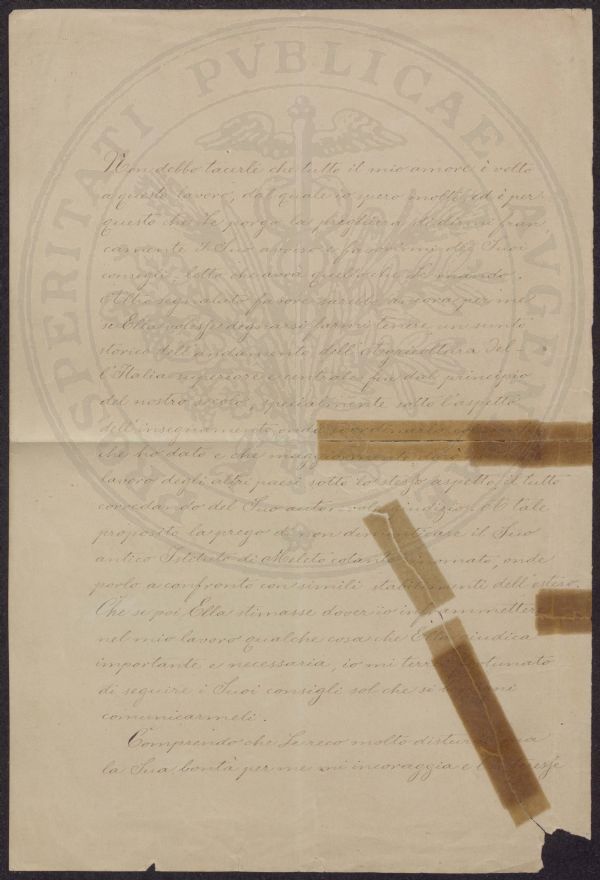 PROSPERITATI PVBLICAE AVGENDAE
Non debbo tacerle che tutto il mio amore è volto
a questo lavoro, dal quale io spero molto, ed è per
questo che Le porgo la preghiera di dirmi fran
camente il Suo avviso e favorirmi dei Suoi
consigli, letto che avrà quello che Le mando.
Altro segnalato favore sarebbe ancora per me
se Ella volesse degnarsi farmi tenere un sunto
storico dell'andamento dell'Agricoltura del
l'Italia superiore e centrale fin dal principio
del nostro secolo, specialmente sotto l'aspetto
dell'insegnamento onde
che ho dato e che
lavoro degli altri paesi sotto lo stesso aspetto, il tutto
corredando del Suo autorevole giudizio. A tale
proposito la prego di non dimenticare il Suo
antico Istituto di Meleto cotanto rinomato, onde
porlo a confronto con simili stabilimenti dell'estero.
Che se poi Ella stimasse dover io inframmettere
nel mio lavoro qualche cosa che Ella giudica
importante e necessaria, io mi terrò fortunato
di seguire i Suoi consigli sol che si
comunicarmeli.
Comprendo che Le reco molto disturbo, ma
la Sua bontà per me mi incoraggia e l'interesse